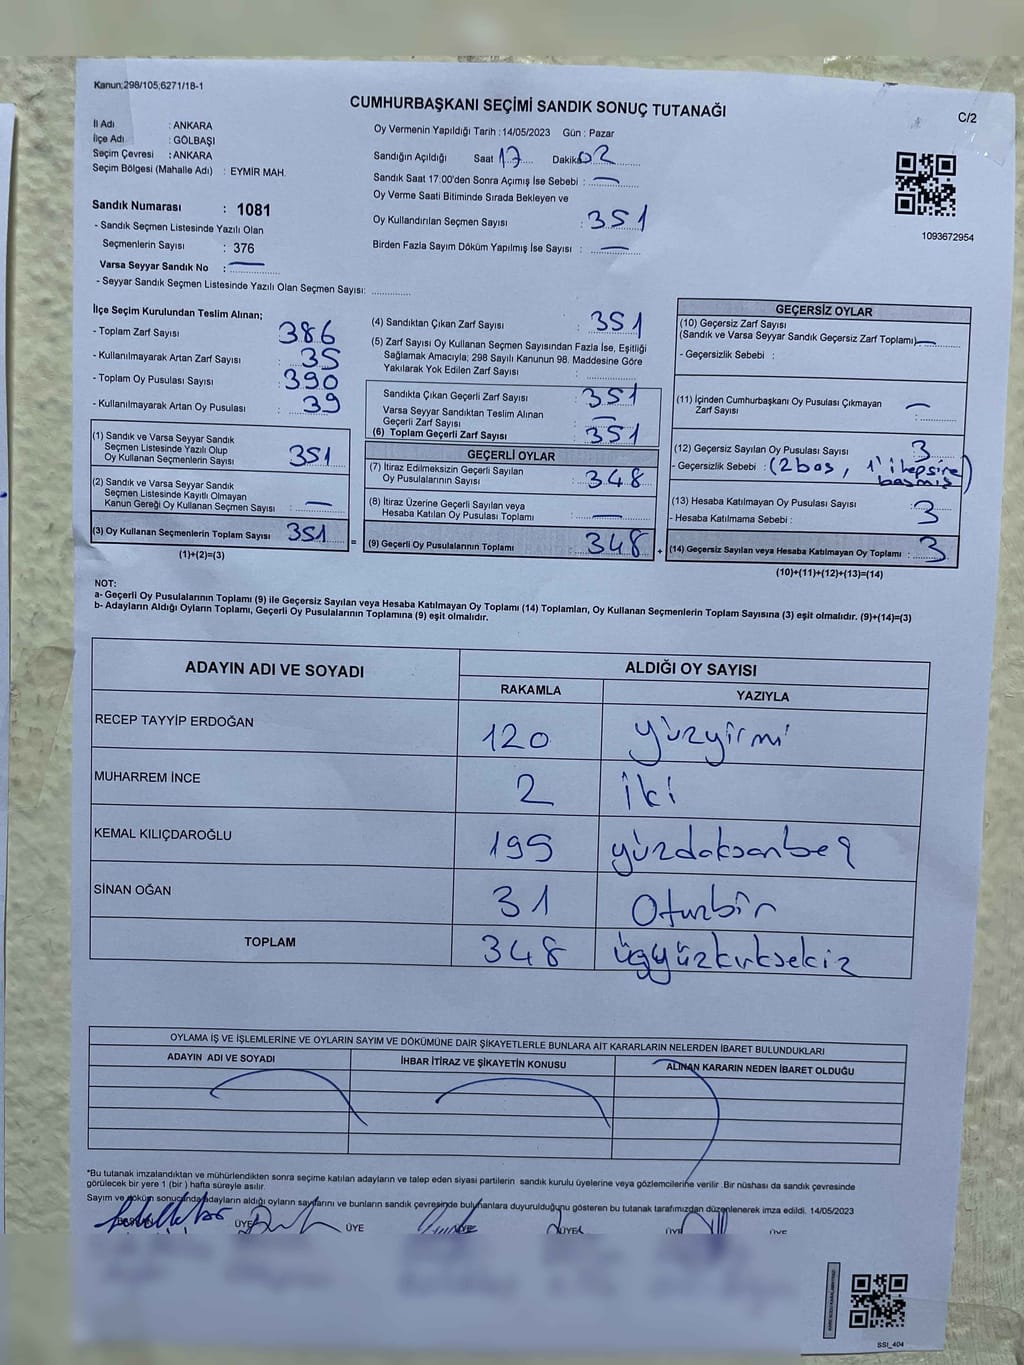 Kanun;298/105;6271/18-1
CUMHURBAŞKANI SEÇİMİ SANDIK SONUÇ TUTANAĞI
C/2
İl Adı : ANKARA
İlçe Adı : GÖLBAŞI
Seçim Çevresi : ANKARA
Seçim Bölgesi (Mahalle Adı) : EYMİR MAH.
Sandık Numarası : 1081
- Sandık Seçmen Listesinde Yazılı Olan
Seçmenlerin Sayısı : 376
Varsa Seyyar Sandık No :
- Seyyar Sandık Seçmen Listesinde Yazılı Olan Seçmen Sayısı:
Oy Vermenin Yapıldığı Tarih :14/05/2023 Gün : Pazar
Sandığın Açıldığı Saat 17 Dakika 02
Sandık Saat 17:00'den Sonra Açımış İse Sebebi : —
Oy Verme Saati Bitiminde Sırada Bekleyen ve
Oy Kullandırılan Seçmen Sayısı : 351
Birden Fazla Sayım Döküm Yapılmış İse Sayısı : —
1093672954
İlçe Seçim Kurulundan Teslim Alınan;
- Toplam Zarf Sayısı : 386
- Kullanılmayarak Artan Zarf Sayısı : 35
- Toplam Oy Pusulası Sayısı : 390
- Kullanılmayarak Artan Oy Pusulası : 39
(1) Sandık ve Varsa Seyyar Sandık
Seçmen Listesinde Yazılı Olup
Oy Kullanan Seçmenlerin Sayısı : 351
(2) Sandık ve Varsa Seyyar Sandık
Seçmen Listesinde Kayıtlı Olmayan
Kanun Gereği Oy Kullanan Seçmen Sayısı : —
(3) Oy Kullanan Seçmenlerin Toplam Sayısı : 351
(1)+(2)=(3)
=
(4) Sandıktan Çıkan Zarf Sayısı : 351
(5) Zarf Sayısı Oy Kullanan Seçmen Sayısından Fazla İse, Eşitliği
Sağlamak Amacıyla; 298 Sayılı Kanunun 98. Maddesine Göre
Yakılarak Yok Edilen Zarf Sayısı :
Sandıkta Çıkan Geçerli Zarf Sayısı : 351
Varsa Seyyar Sandıktan Teslim Alınan
Geçerli Zarf Sayısı : —
(6) Toplam Geçerli Zarf Sayısı : 351
GEÇERLİ OYLAR
(7) İtiraz Edilmeksizin Geçerli Sayılan
Oy Pusulalarının Sayısı : 348
(8) İtiraz Üzerine Geçerli Sayılan veya
Hesaba Katılan Oy Pusulası Toplamı : —
(9) Geçerli Oy Pusulalarının Toplamı : 348
+
GEÇERSİZ OYLAR
(10) Geçersiz Zarf Sayısı
(Sandık ve Varsa Seyyar Sandık Geçersiz Zarf Toplamı) : —
- Geçersizlik Sebebi :
(11) İçinden Cumhurbaşkanı Oy Pusulası Çıkmayan
Zarf Sayısı : —
(12) Geçersiz Sayılan Oy Pusulası Sayısı : 3
- Geçersizlik Sebebi : (2 boş, 1'i hepsine
basmış)
(13) Hesaba Katılmayan Oy Pusulası Sayısı : 3
- Hesaba Katılmama Sebebi :
(14) Geçersiz Sayılan veya Hesaba Katılmayan Oy Toplamı : 3
(10)+(11)+(12)+(13)=(14)
NOT:
a- Geçerli Oy Pusulalarının Toplamı (9) ile Geçersiz Sayılan veya Hesaba Katılmayan Oy Toplamı (14) Toplamları, Oy Kullanan Seçmenlerin Toplam Sayısına (3) eşit olmalıdır. (9)+(14)=(3)
b- Adayların Aldığı Oyların Toplamı, Geçerli Oy Pusulalarının Toplamına (9) eşit olmalıdır.
ADAYIN ADI VE SOYADI ALDIĞI OY SAYISI
RAKAMLA YAZIYLA
RECEP TAYYİP ERDOĞAN 120 yüzyirmi
MUHARREM İNCE 2 iki
KEMAL KILIÇDAROĞLU 195 yüzdoksanbeş
SİNAN OĞAN 31 Otuzbir
TOPLAM 348 üçyüzkırksekiz
OYLAMA İŞ VE İŞLEMLERİNE VE OYLARIN SAYIM VE DÖKÜMÜNE DAİR ŞİKAYETLERLE BUNLARA AİT KARARLARIN NELERDEN İBARET BULUNDUKLARI
ADAYIN ADI VE SOYADI İHBAR İTİRAZ VE ŞİKAYETİN KONUSU ALINAN KARARIN NEDEN İBARET OLDUĞU
*Bu tutanak imzalandıktan ve mühürlendikten sonra seçime katılan adayların ve talep eden siyasi partilerin sandık kurulu üyelerine veya gözlemcilerine verilir .Bir nüshası da sandık çevresinde
görülecek bir yere 1 (bir ) hafta süreyle asılır.
Sayım ve döküm sonucunda adayların aldığı oyların sayılarını ve bunların sandık çevresinde bulunanlara duyurulduğunu gösteren bu tutanak tarafımızdan düzenlenerek imza edildi. 14/05/2023
BAŞKAN ÜYE ÜYE ÜYE ÜYE ÜYE ÜYE
SSI_404